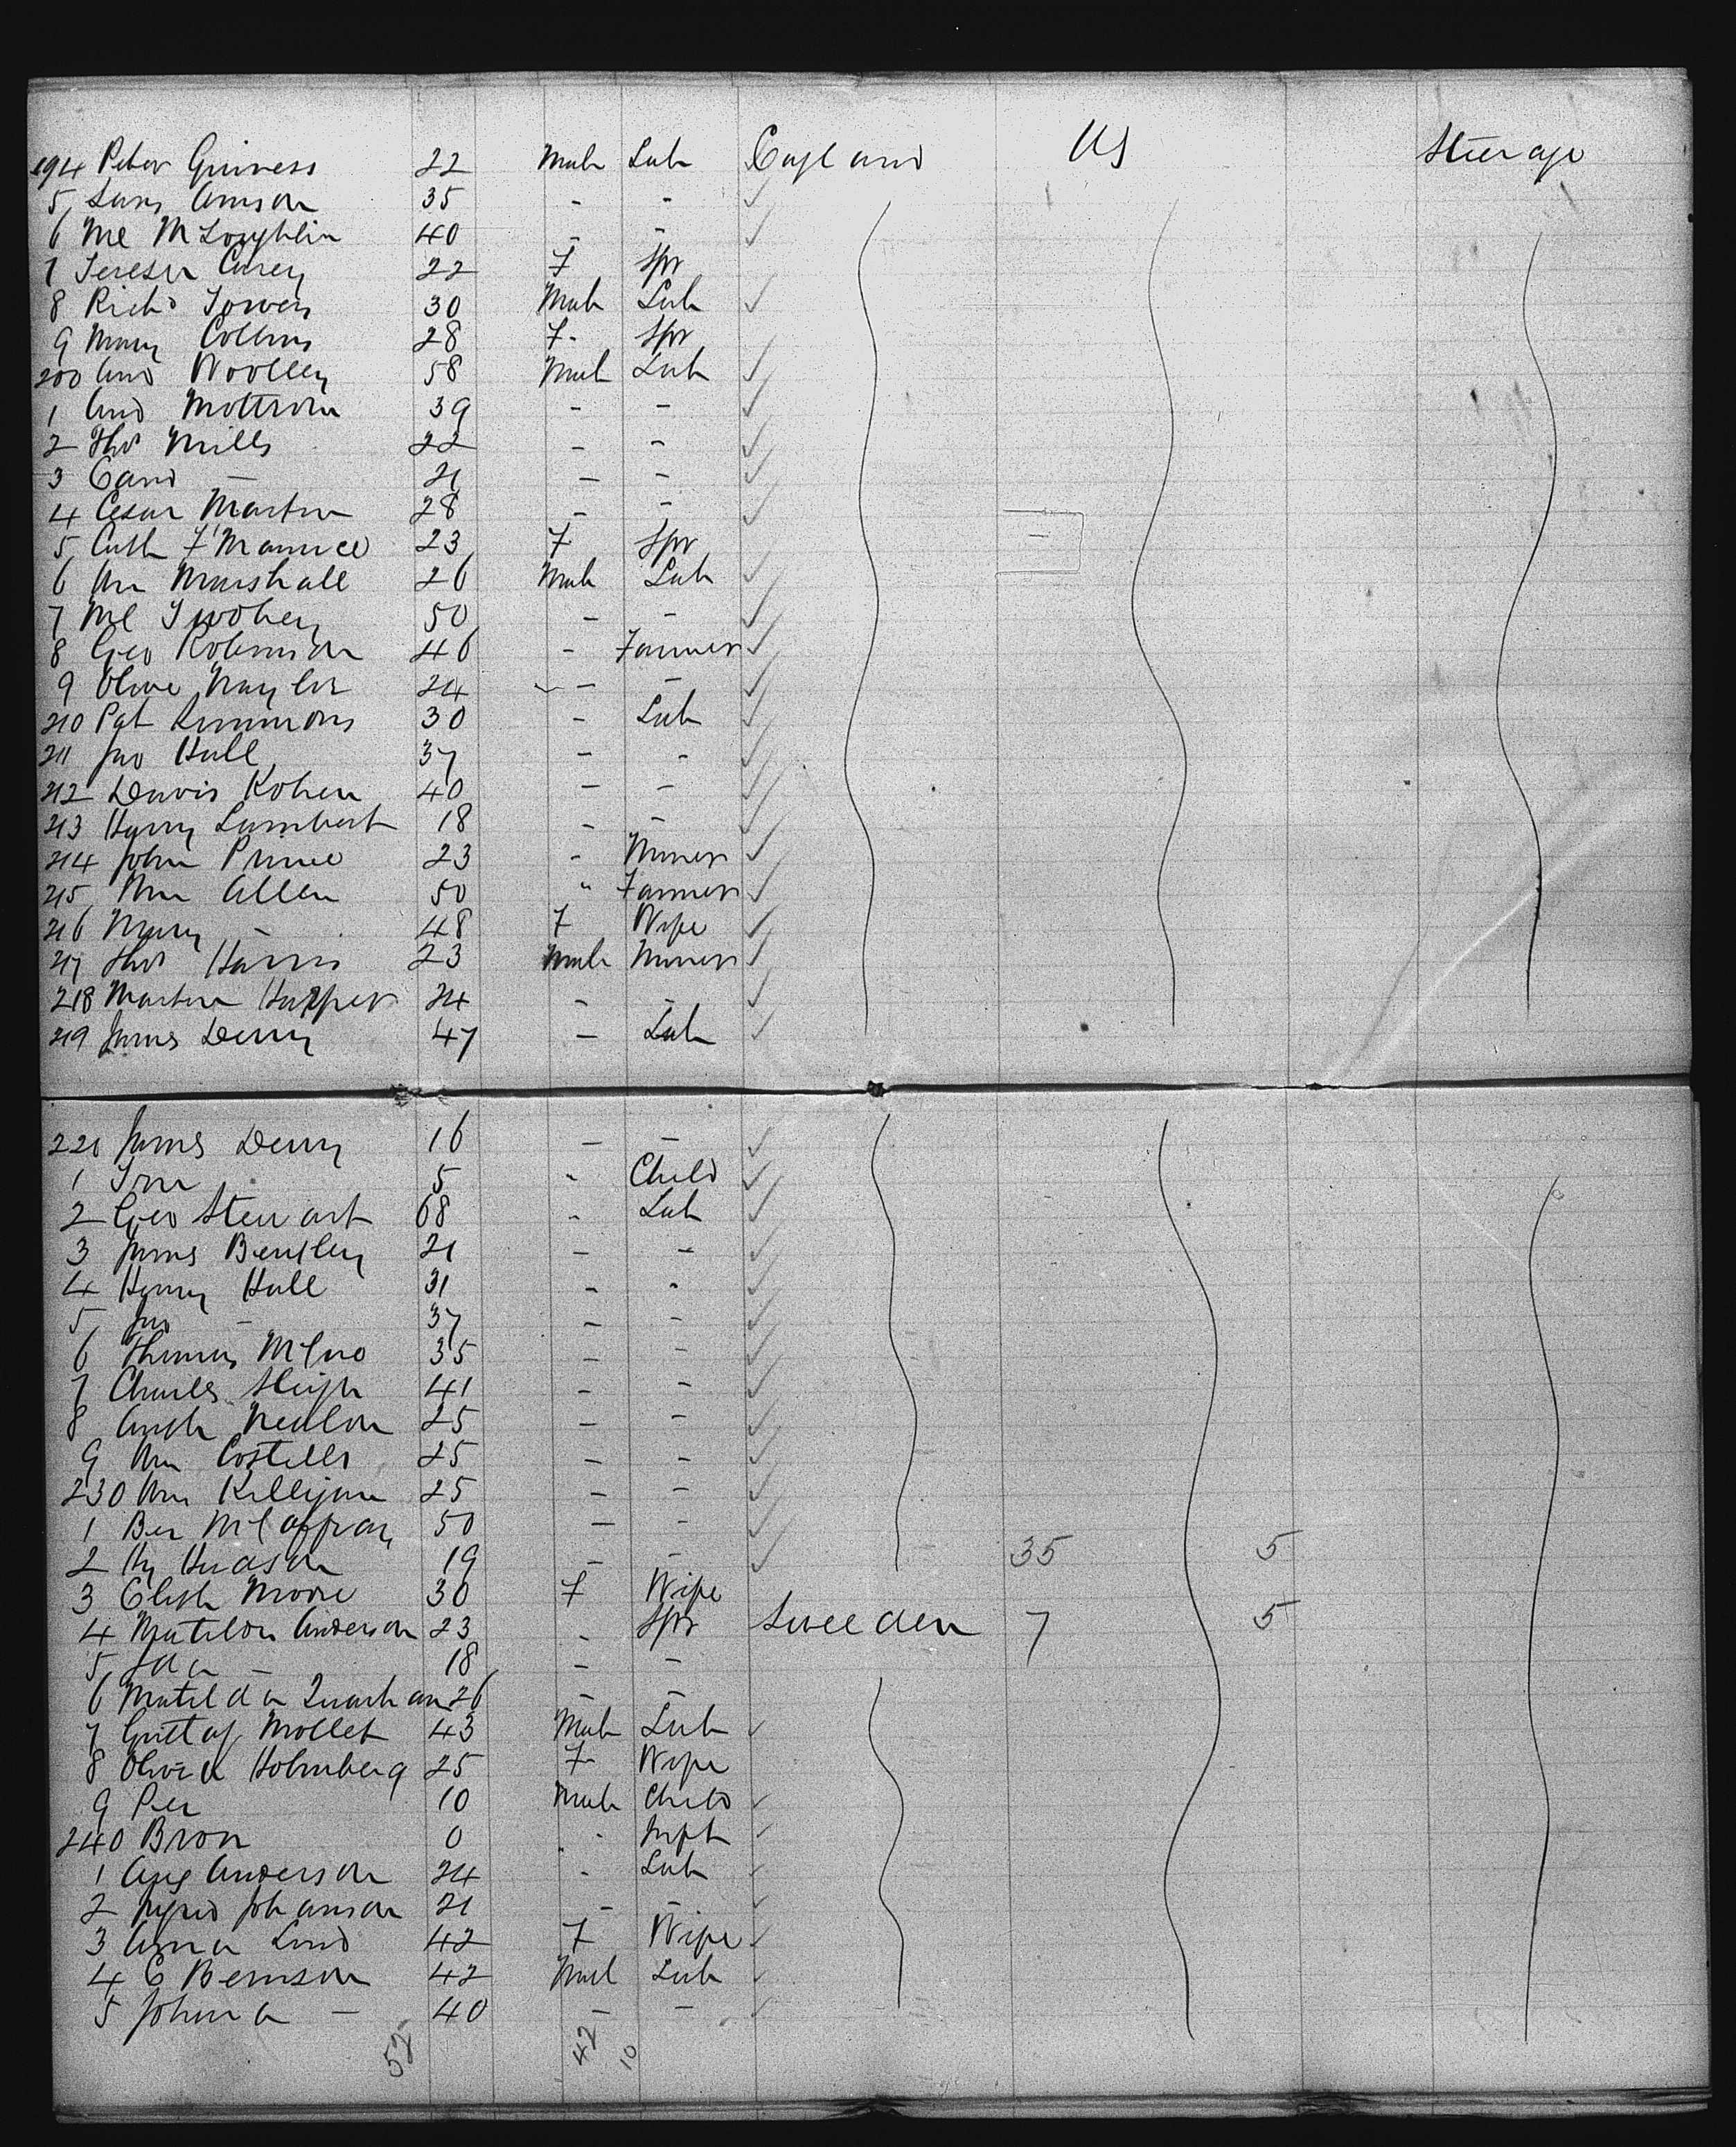 194 Peter Guiness 22 Male Lab England US Steerage
5 Lars Amson 35 - -
6 Ml McLoughlin 40 - -
7 Teresa Carey 22 F Spr
8 Richd Towers 30 Male Lab
9 Mary Collins 28 F - Spr
200 And Woolley 58 Male Lab
1 And Mottrom 39 - -
2 Thos Mills 22 - -
3 Edwd — 21 - -
4 Cesar Martin 28 - -
5 Cath F'Maurice 23 F Spr
6 Wm Marshall 26 Male Lab
7 Ml Twohey 50 - -
8 Geo Robinson 46 - Farmer
9 Olive Naylor 24 - -
210 Pat Simmons 30 - Lab
211 Jno Hall 37 - -
212 Davis Kohen 40 - -
213 Harry Lambert 18 - -
214 John Prince 23 - Miner
215 Wm Allen 50 " Farmer
216 Mary - 48 F Wife
217 Thos Harris 23 Male Miner
218 Martin Harper 24 - -
219 James Derry 47 - Lab
220 James Derry 16 - -
1 Tom 5 " Child
2 Geo Stewart 68 " Lab
3 James Bentley 21 - -
4 Henry Hall 31 - "
5 Jno - 37 - -
6 Thomas 35 - -
7 Charles Sleigh 41 - -
8 Nealon 25 - -
9 Wm Costello 25 - -
230 Wm Killigan 25 - -
1 Ber McCaffray 50 - -
2 Hy Hudson 19 - - 35 5
3 Elizth Moore 30 F Wife
4 Matilda Anderson 23 - Spr Sweeden 7 5
5 Ida - 18 - -
6 Matilda 26 - -
7 Gustaf Mollet 43 Male Lab
8 Olivia Holmberg 25 F Wife
9 Per 10 Male Child
240 Bron 0 " Inft
1 Aug Anderson 24 " Lab
2 Ingrid Johanson 21 - -
3 Anna Lind 42 F Wife
4 C Bernson 42 Male Lab
5 Johna - 40 - -
52 42 10